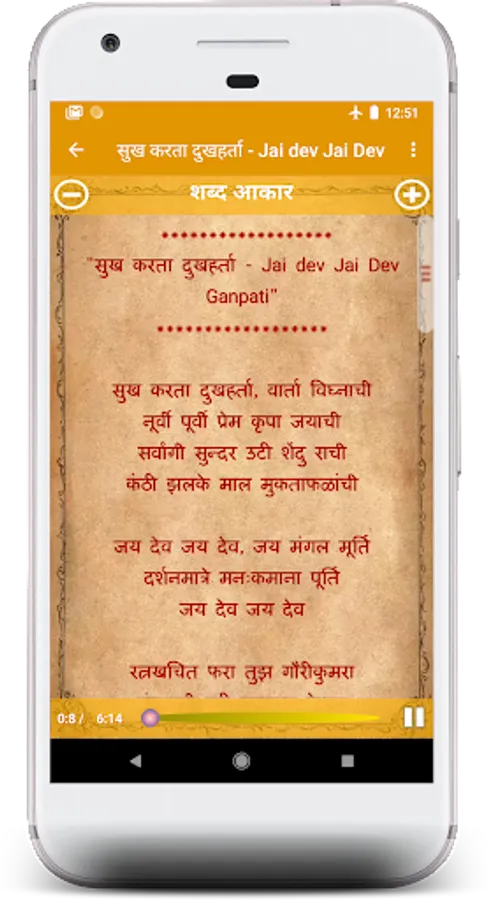 12:51
सुख करता दुखहर्ता - Jai dev Jai Dev
शब्द आकार
"सुख करता दुखहर्ता - Jai dev Jai Dev
Ganpati"
सुख करता दुखहर्ता, वार्ता विघ्नाची
नूर्वी पूर्वी प्रेम कृपा जयाची
सर्वांगी सुन्दर उटी शेंदु राची
कंठी झलके माल मुकताफळांची
जय देव जय देव, जय मंगल मूर्ति
दर्शनमात्रे मनःकमाना पूर्ति
जय देव जय देव
रत्नखचित फरा तुझ गौरीकुमरा
0:8 / 6:14